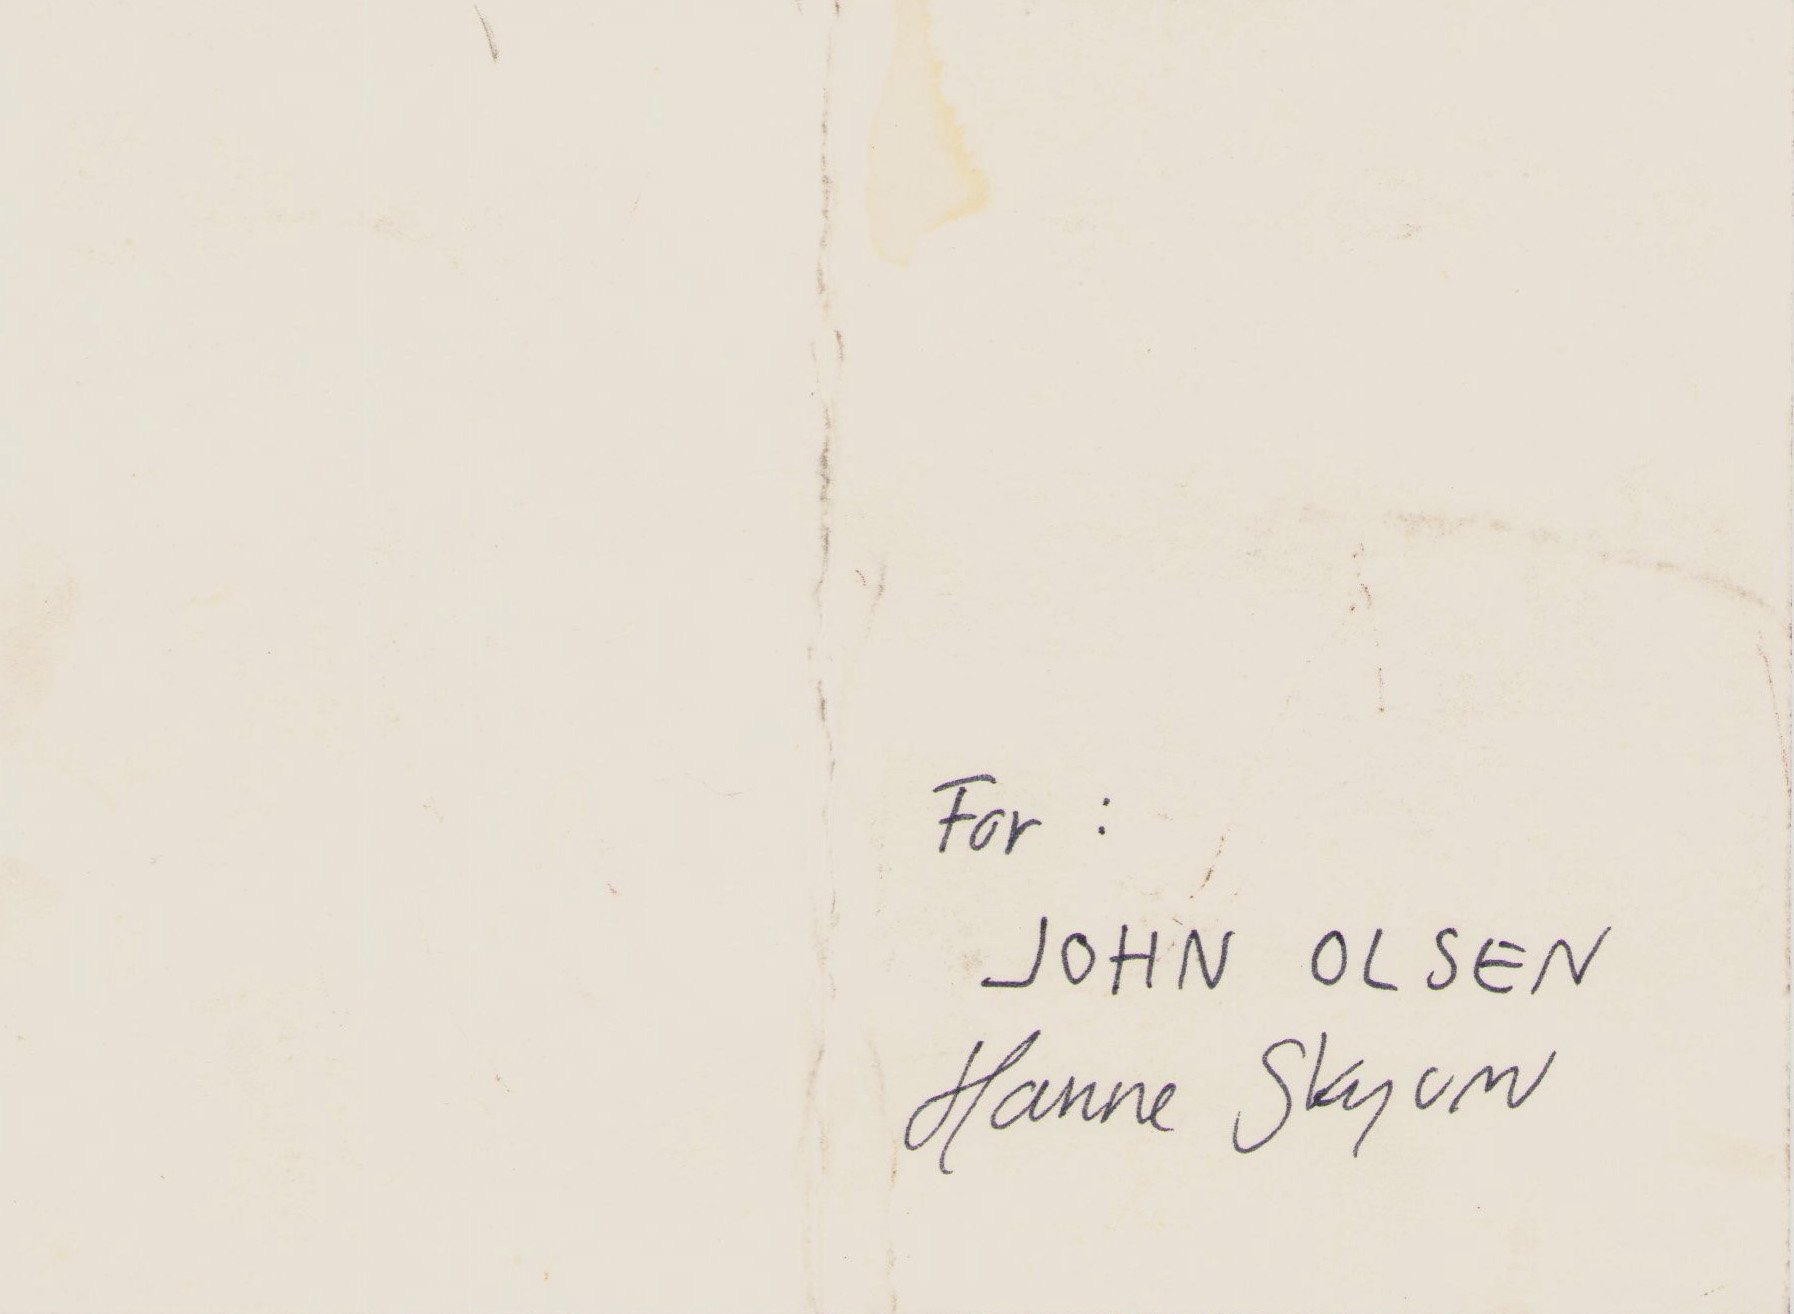 For :
JOHN OLSEN
Hanne Skyum